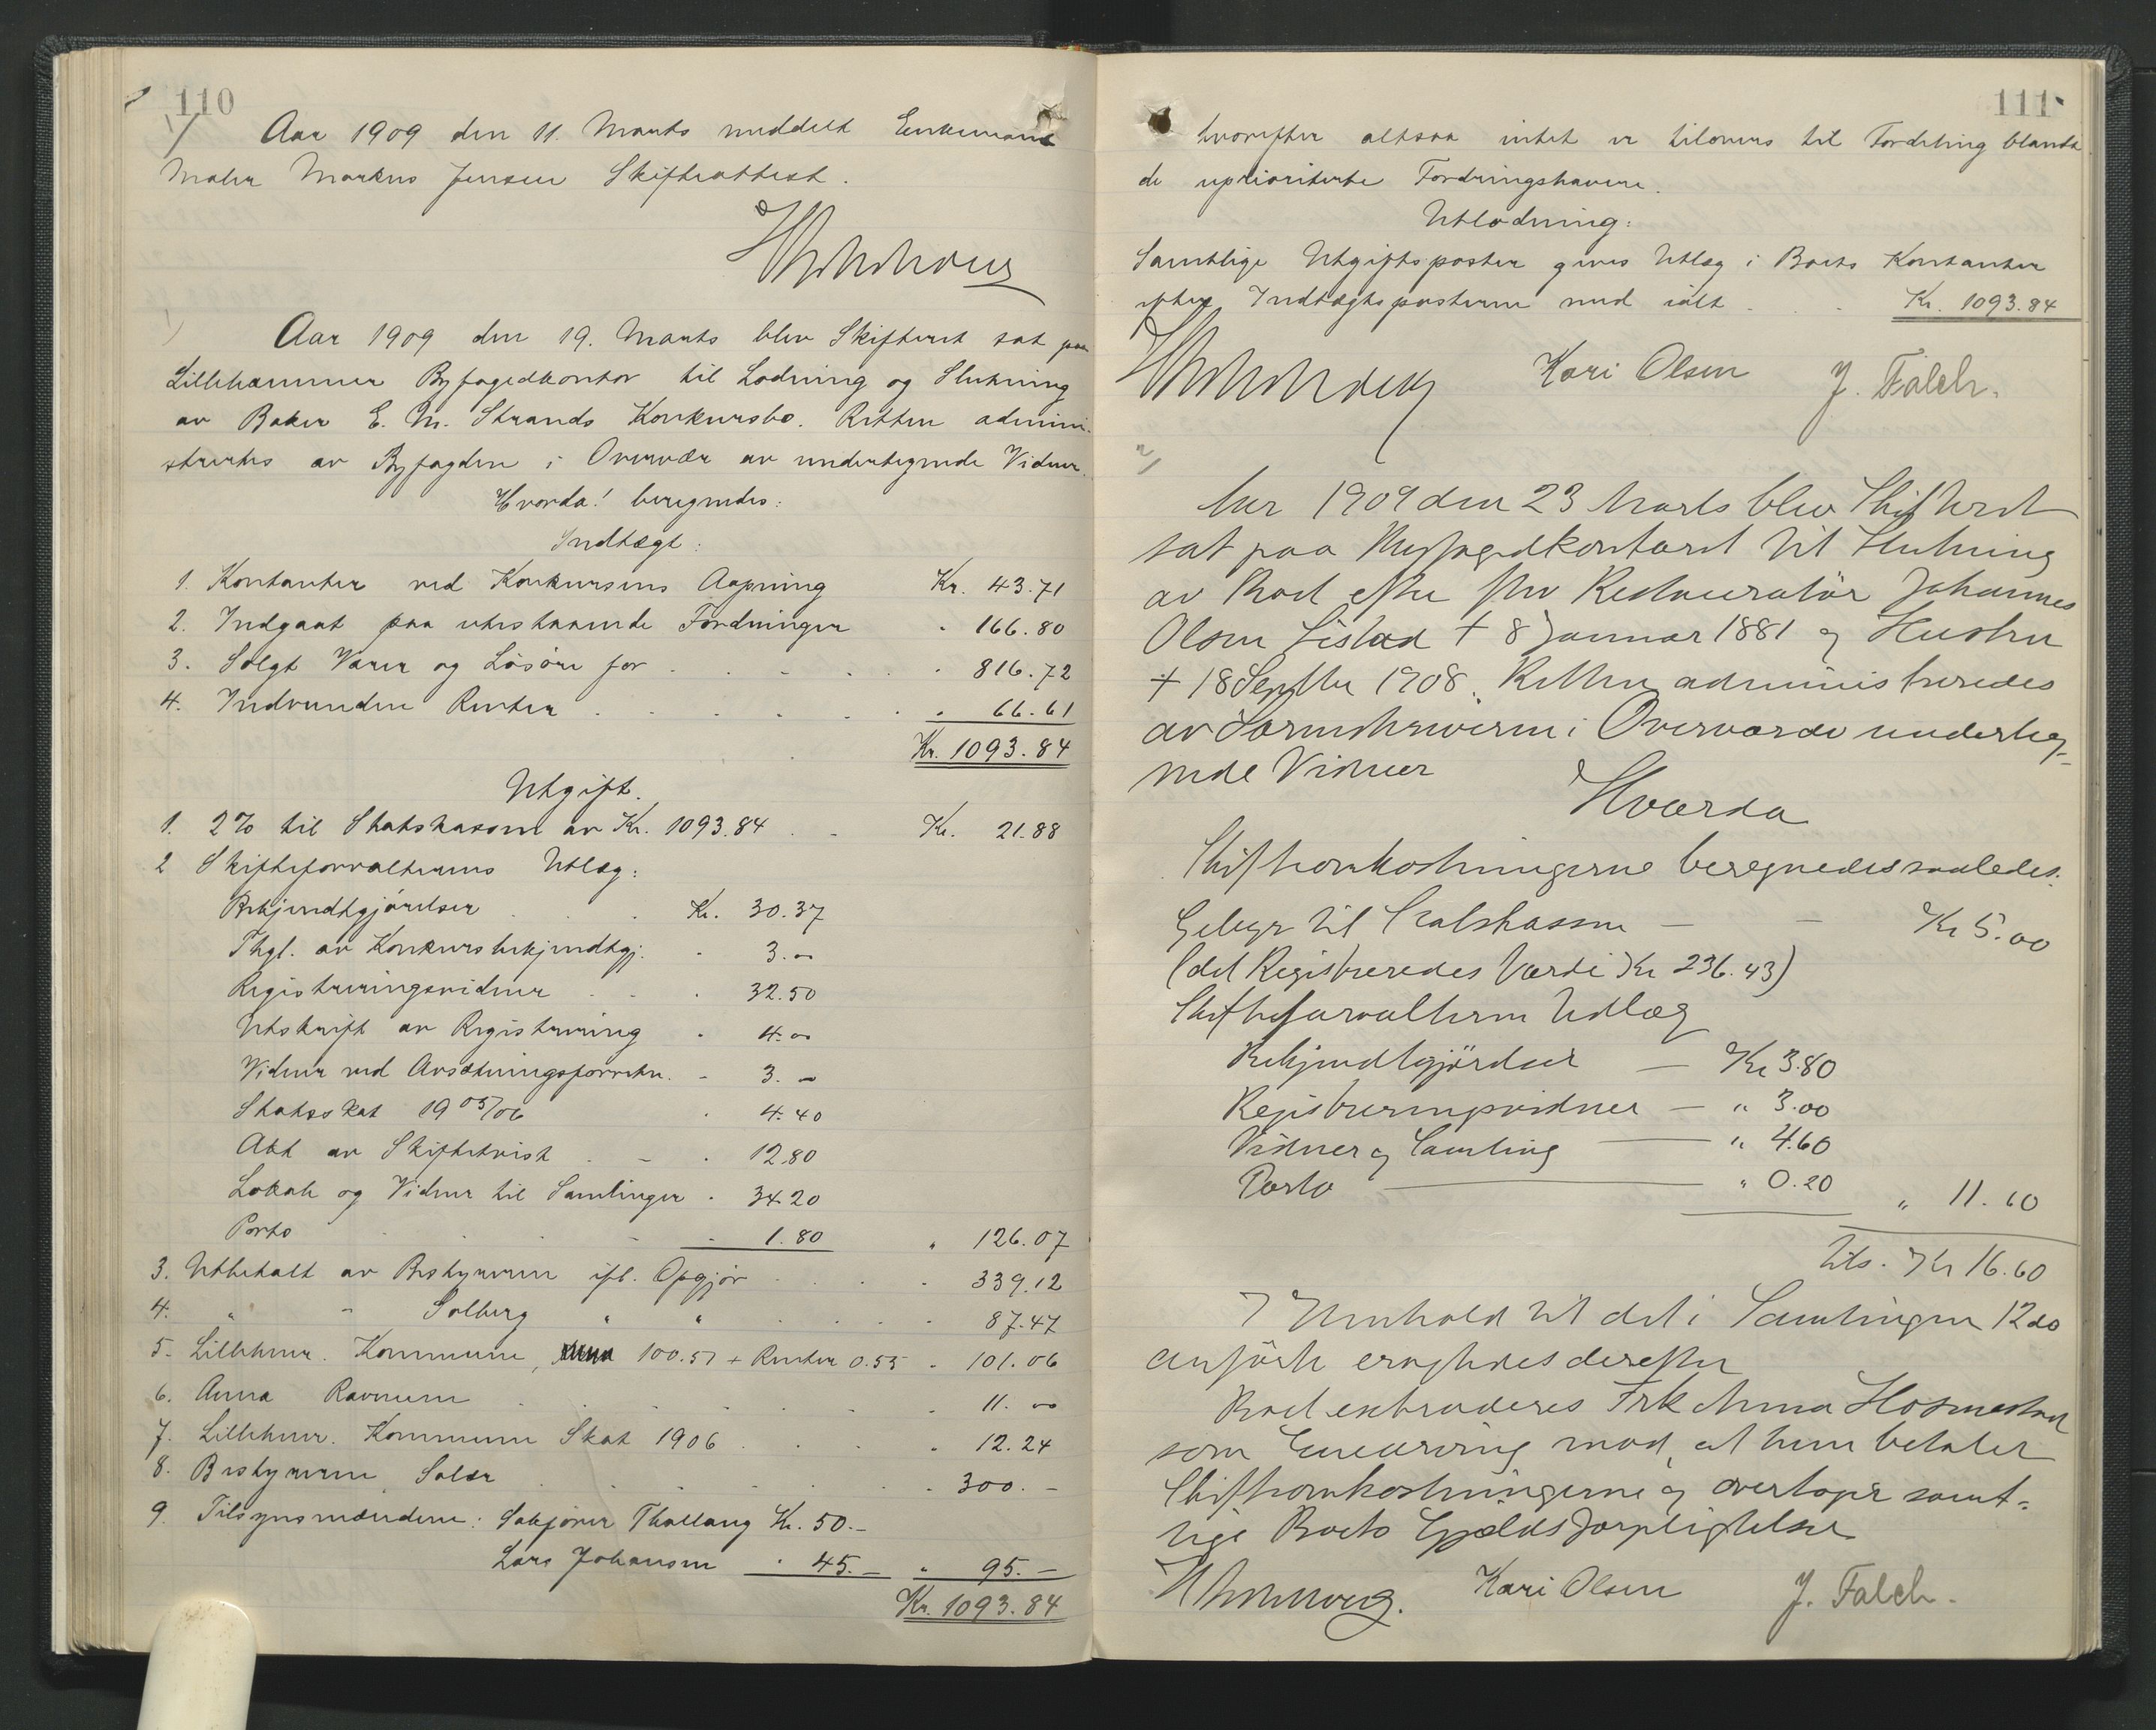 110
Aar 1909 den 11. Marts meddelt Enkemand
Maler Markus Jensen Skifteattest.
Aar 1909 den 19. Marts blev Skifteret sat paa
Lillehammer Byfogedkontor til Lodning og Slutning
av Baker E. M. Strands Konkursbo. Retten admini-
strertes av Byfogden i Overvær av undertegnede Vidner.
Hvorda! beregnedes:
Indtægt:
1. Kontanter ved Konkursens Aapning Kr. 43.71
2. Indgaat paa utestaaende Fordringer " 166.80
3. Solgt Varer og Løsøre for . . . . " 816.72
4. Indvundne Renter . . . . . " 66.61
Kr. 1093.84
Utgift.
1. 2% til Statskassen av Kr. 1093.84 . . Kr. 21.88
2 Skifteforvalterens Utlæg:
Bekjendtgjørelser . . . Kr. 30.37
Thgl. av Konkursbekjendtgj. " 3.00
Registreringsvidner . . " 32.50
Utskrift av Registrering " 4.00
Vidner ved Avsætningsforretn. " 3.00
Statsskat 1905/06 " 4.40
Akt av Skiftetvist . . " 12.80
Lokale og Vidner til Samlinger " 34.20
Porto . . . . " 1.80 " 126.07
3. Utbetalt av Bestyreren ifl. Opgjør . . . " 339.12
4. " " Solberg " " . . . " 87.47
5. Lillehmr. Kommune, 100.51 + Renter 0.55 " 101.06
6. Anna Ravnum . . . . . " 11.00
7. Lillehmr. Kommune Skat 1906 . . . " 12.24
8. Bestyreren, Salær . . . . . " 300.-
9. Tilsynsmændene: Sakfører Thallaug Kr. 50.-
Lars Johansen " 45.- " 95.-
Kr. 1093.84
111
hvorefter altsaa intet er tilovers til Fordeling blandt
de uprioriterte Fordringshavere.
Utlodning:
Samtlige Utgiftsposter gives Utlæg i Boets Kontanter
efter Indtægtsposterne med ialt . . . Kr. 1093.84
Kari Olsen J. Falch.
2/
Aar 1909 den 23 Marts blev Skifteret
sat paa Byfogedkontoret til Slutning
av Boet efter fhv Restauratør Johannes
Olsen Sistad † 8 Januar 1881 og Hustru
† 18 Septbr 1908. Retten administreredes
av Sorenskriveren i Overværde underteg-
nede Vidner
Hvorda
Skifteomkostningerne beregnedes saaledes:
Gebyr til Statskassen — — Kr 5.00
(det Registreredes Værdi Kr 236.43)
Skifteforvalteren Udlæg
Bekjendtgjørelser — Kr 3.80
Registreringsvidner — " 3.00
Vidner og Samling — " 4.60
Porto — " 0.20 " 11.60
Tils. Kr 16.60
I Henhold til det i Samlingen 12 ds
anførte eragtedes derefter
Boet extraderes Frk Anna
som Enearving mod, at hun betaler
Skifteomkostningerne og overtager samt-
lige Boets Gjældsforpligtelser
Kari Olsen J. Falch.